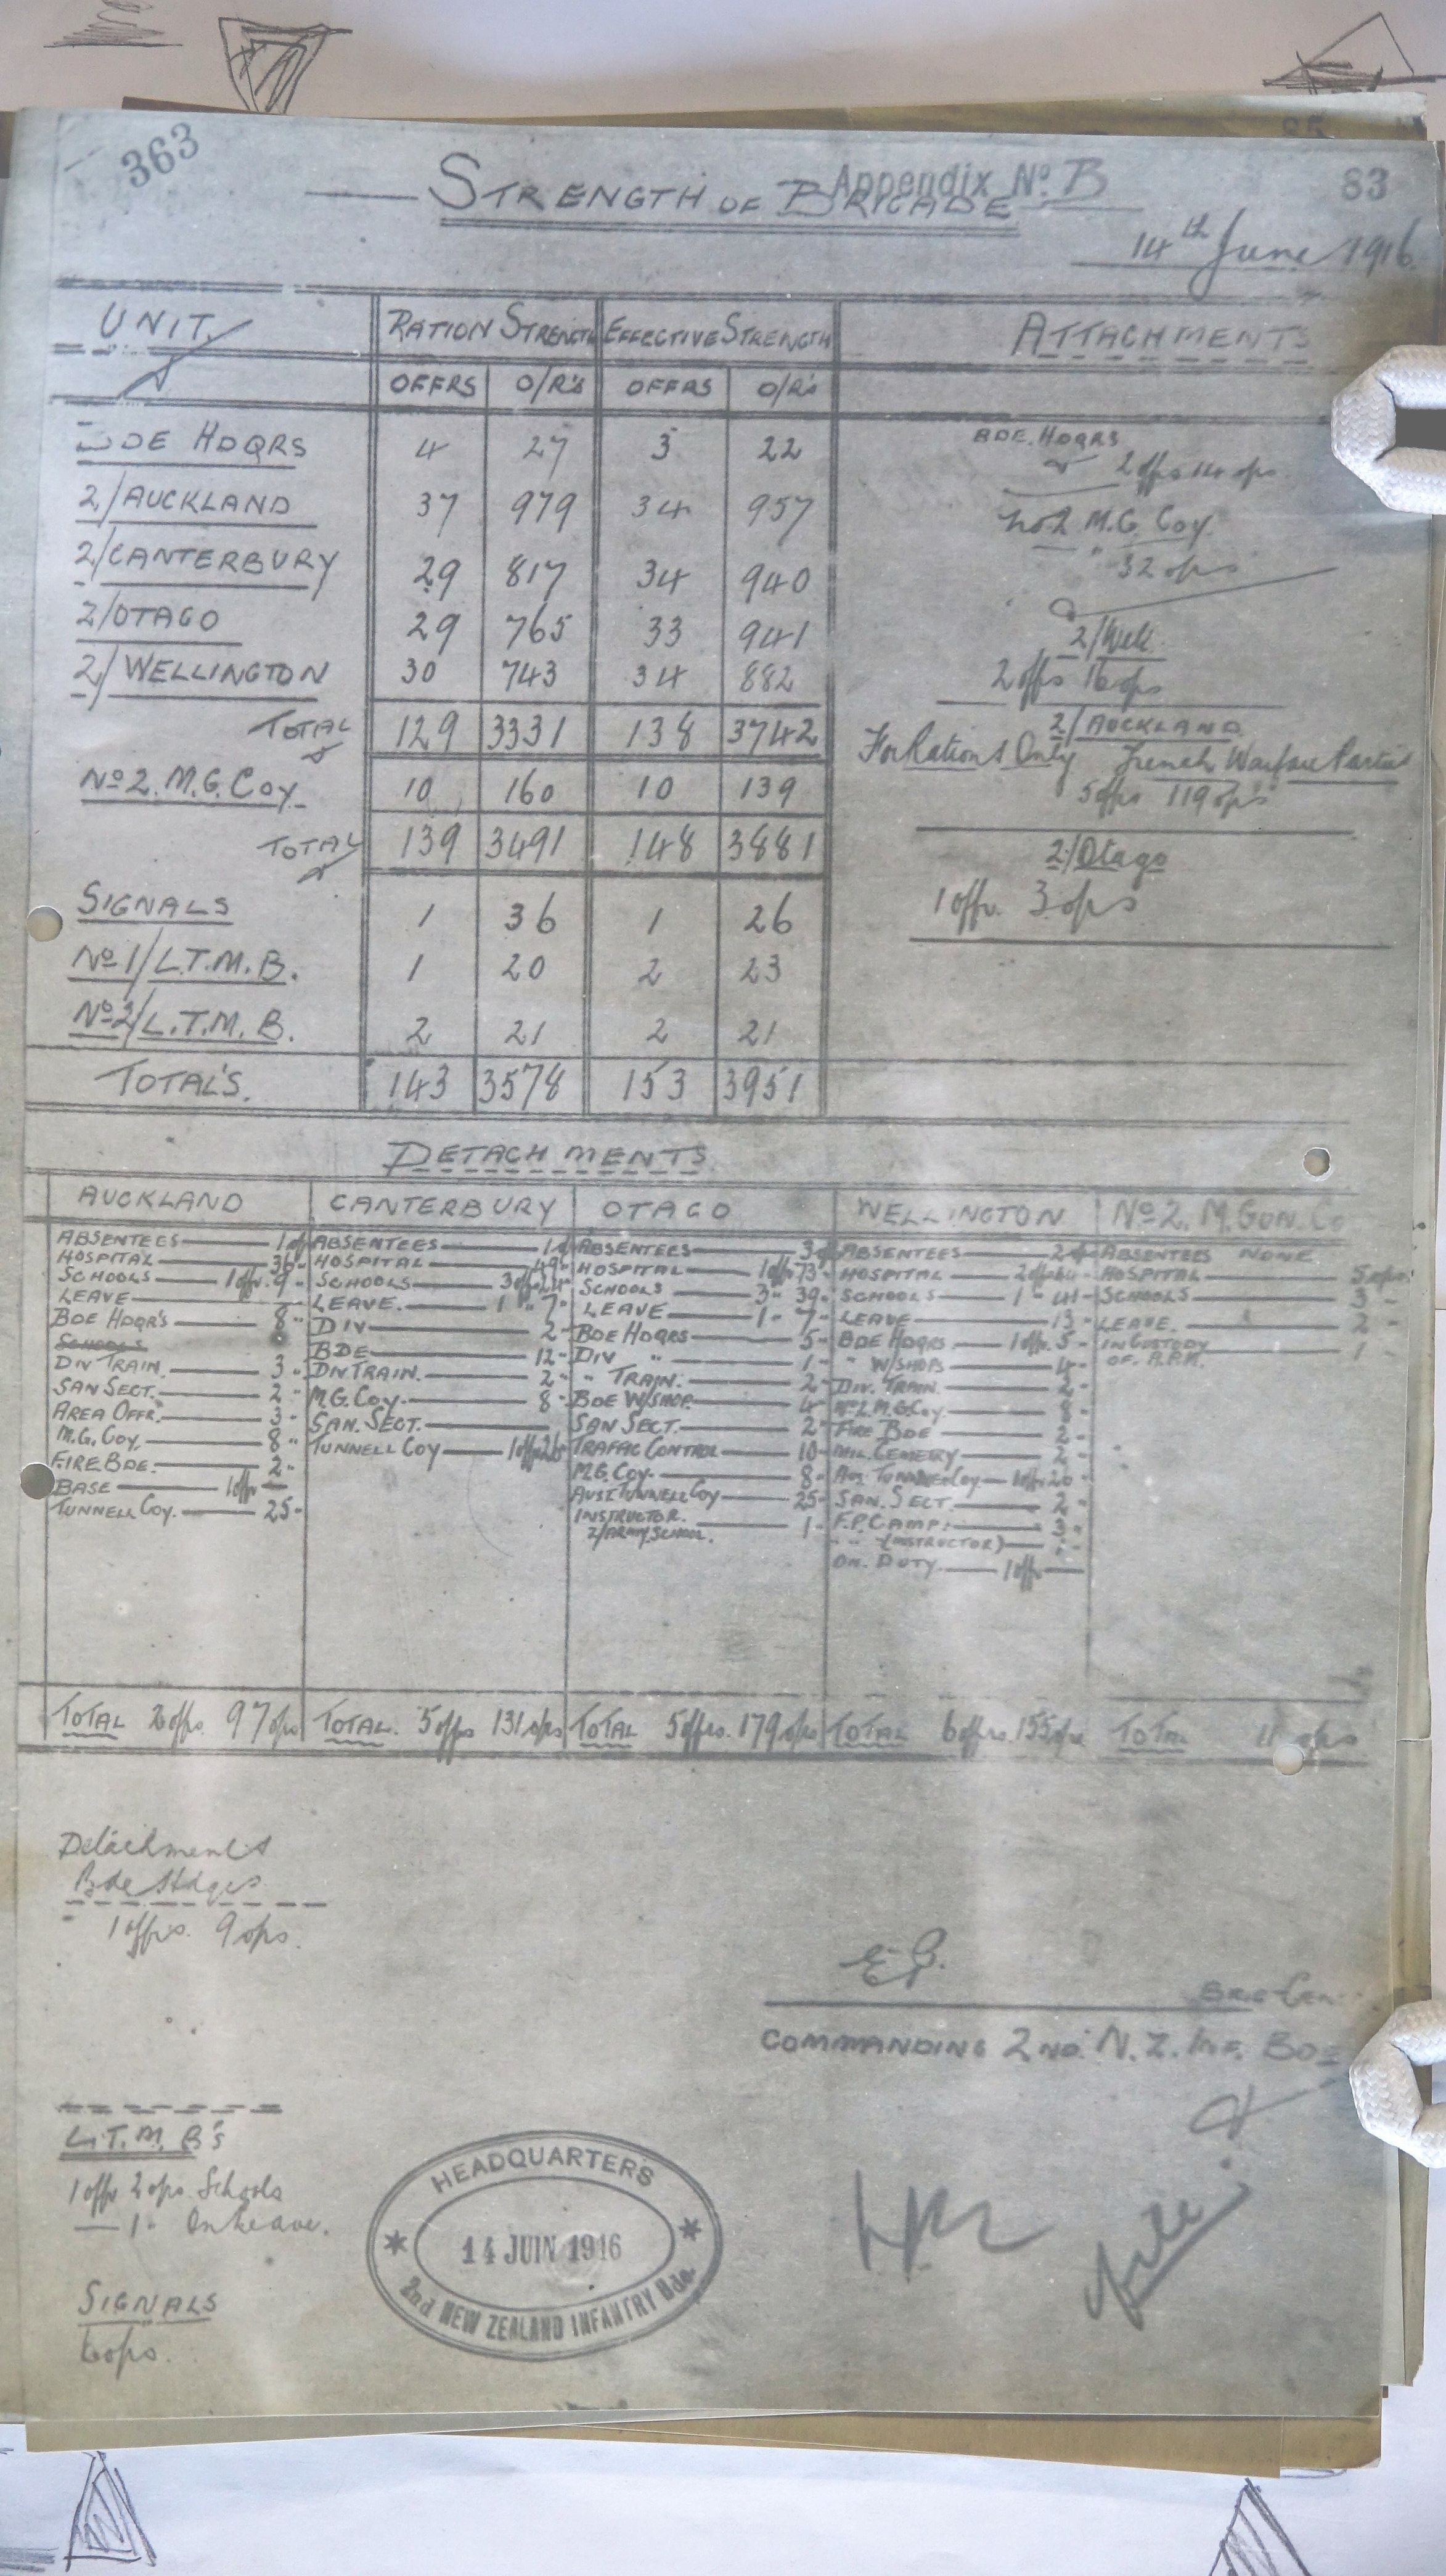 363
Appendix No B
83
STRENGTH OF BRIGADE
14th June 1916.
UNIT. RATION STRENGTH EFFECTIVE STRENGTH ATTACHMENTS
OFFRS O/R's OFFRS O/R's
BDE HDQRS 4 27 3 22
2/AUCKLAND 37 979 34 957
2/CANTERBURY 29 817 34 940
2/OTAGO 29 765 33 941
2/WELLINGTON 30 743 34 882
TOTAL 129 3331 138 3742
No 2. M.G. COY. 10 160 10 139
TOTAL 139 3491 148 3881
SIGNALS 1 36 1 26
No 1/L.T.M.B. 1 20 2 23
No 2/L.T.M.B. 2 21 2 21
TOTAL'S. 143 3578 153 3951
BDE. HDQRS
2 offs 14 ops.
No 2 M.G. Coy.
32 ops
2/Well.
2 offs 16 ops
2/AUCKLAND
For Rations Only Trench Warfare Parties
5 offs 119 ops
2/Otago
1 offr. 3 ops
DETACHMENTS
AUCKLAND
ABSENTEES 1
HOSPITAL 36
SCHOOLS 1 offr. 9
LEAVE
BDE HDQR'S 8
SCHOOLS
DIV TRAIN. 3
SAN SECT. 2
AREA OFFR. 3
M.G. COY. 8
FIRE BDE. 2
BASE 1 offr
TUNNELL COY. 25
TOTAL 2 offs. 97 ops
CANTERBURY
ABSENTEES 1
HOSPITAL 49
SCHOOLS 3 off 24
LEAVE. 1 " 7
DIV 2
BDE 12
DIV TRAIN. 2
M.G. COY. 8
SAN. SECT.
TUNNELL COY 1 offr 26
TOTAL. 5 offs 131 ops
OTAGO
ABSENTEES 3
HOSPITAL 1 off 73
SCHOOLS 3 " 39
LEAVE 1 " 7
BDE HDQRS 5
DIV " 1
" TRAIN. 2
BDE W/SHOP. 4
SAN SECT. 2
TRAFFIC CONTROL 10
M.G. COY. 8
AUST TUNNELL COY 25
INSTRUCTOR. 1
2/ARMY SCHOOL.
TOTAL 5 offrs. 179 ops
WELLINGTON
ABSENTEES 2
HOSPITAL 2 off
SCHOOLS 1 " 41
LEAVE 13
BDE HDQRS 1 offr. 5
" W/SHOPS 4
DIV. TRAIN. 2
No 2. M.G. COY 8
FIRE BDE 2
MIL. CEMETERY 2
AUS. TUNNELL COY 1 offr 20
SAN. SECT. 2
F.P. CAMP. 3
" " (INSTRUCTOR)
ON. DUTY. 1 offr
TOTAL 6 offrs. 155 ops
No 2. M. GUN. Co
ABSENTEES NONE
HOSPITAL 5 ops
SCHOOLS 3
LEAVE. 2
IN CUSTODY 1
OF A.P.M.
TOTAL 11 ops
Detachments
Bde Hdqrs
1 offrs. 9 ops.
BRIG-GEN
COMMANDING 2ND. N.Z. INF. BDE
L.T.M.B's
1 offr 2 ops. Schools
1 " On Leave.
SIGNALS
6 ops.
HEADQUARTERS
14 JUIN 1916
2nd NEW ZEALAND INFANTRY Bde.